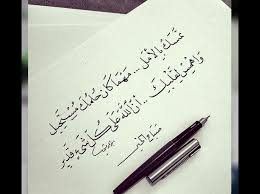 تمسك بالأمل... مهما كان حلمك مستحيل
واهمس لقلبك.. أن الله على كل شيء قدير
صباح الخير